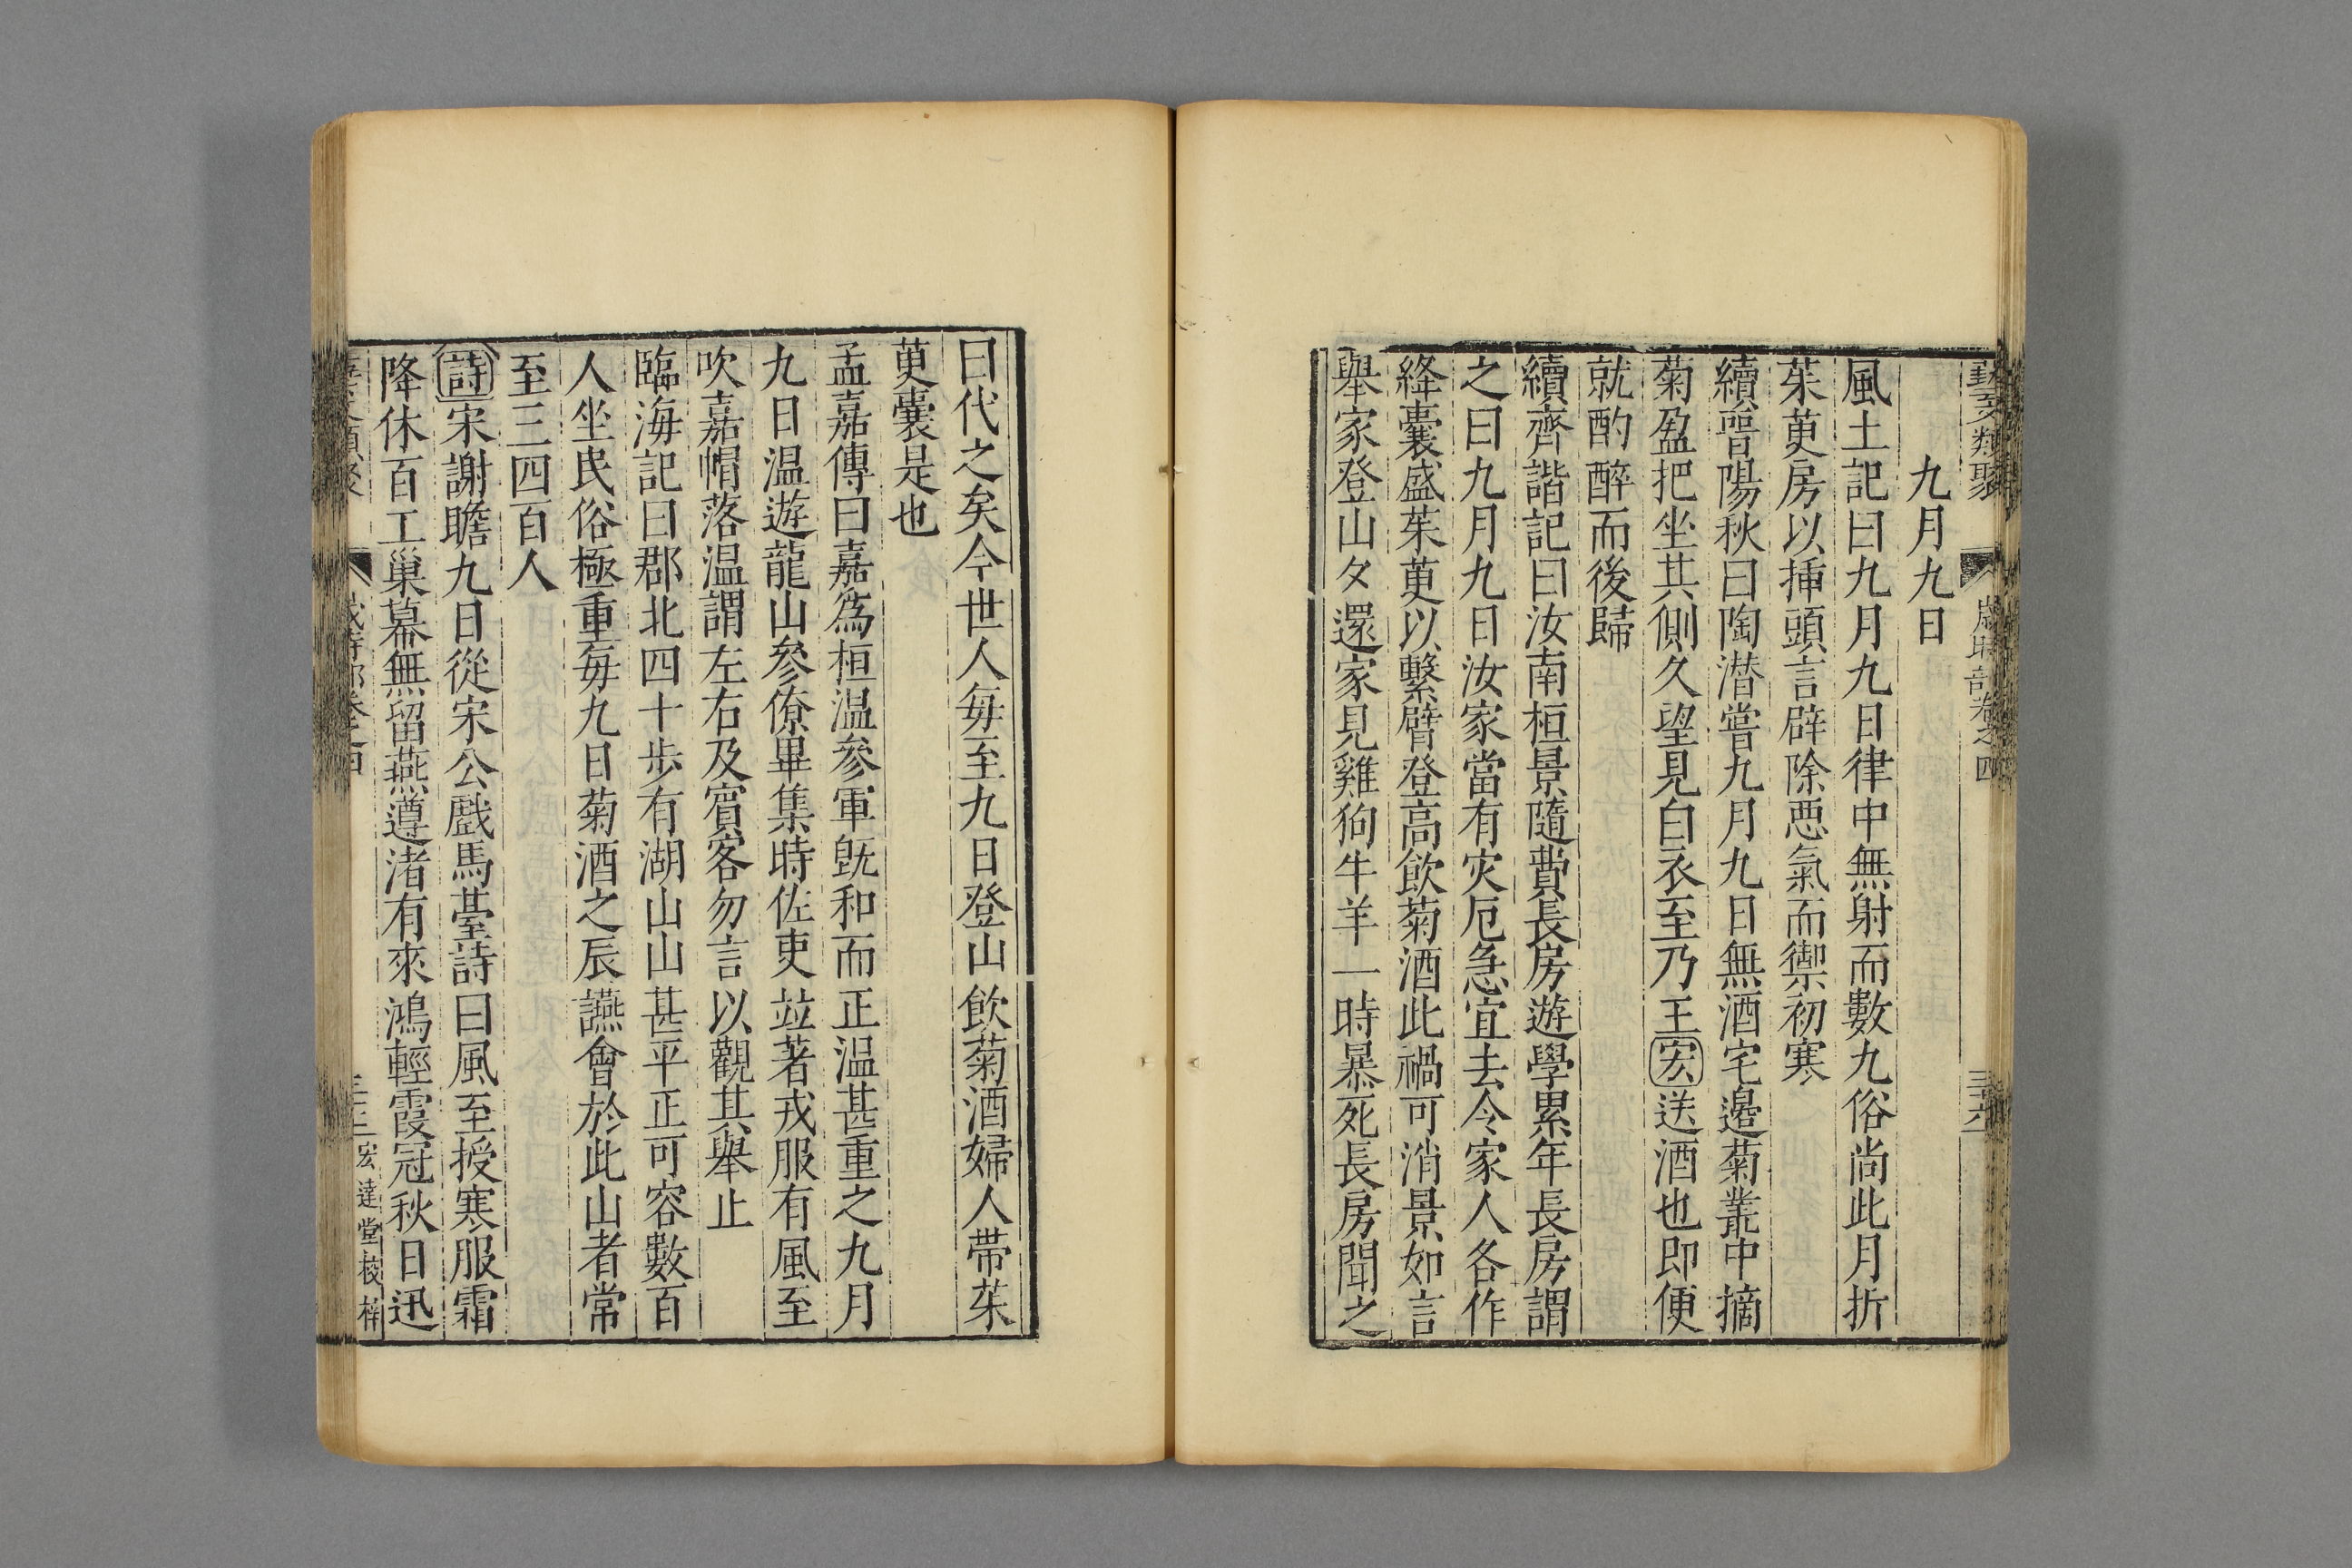 藝文類聚 歲時部卷之四 三十六
九月九日
風土記曰九月九日律中無射而數九俗尚此月折
茱萸房以揷頭言辟除惡氣而禦初寒
續晉陽秋曰陶潛嘗九月九日無酒宅邊菊叢中摘
菊盈把坐其側久望見白衣至乃王宏送酒也即便
就酌醉而後歸
續齊諧記曰汝南桓景隨費長房遊學累年長房謂
之曰九月九日汝家當有灾厄急宜去令家人各作
絳囊盛茱萸以繫臂登高飲菊酒此禍可消景如言
舉家登山夕還家見雞狗牛羊一時暴死長房聞之
曰代之矣今世人毎至九日登山飲菊酒婦人帶茱
萸囊是也
孟嘉傳曰嘉爲桓温參軍旣和而正温甚重之九月
九日温遊龍山參僚畢集時佐吏竝著戎服有風至
吹嘉帽落温謂左右及賓客勿言以觀其舉止
臨海記曰郡北四十步有湖山山甚平正可容數百
人坐民俗極重毎九日菊酒之辰讌會於此山者常
至三四百人
詩宋謝瞻九日從宋公戲馬臺詩曰風至授寒服霜
降休百工巢幕無留燕遵渚有來鴻輕霞冠秋日迅
宏達堂校梓